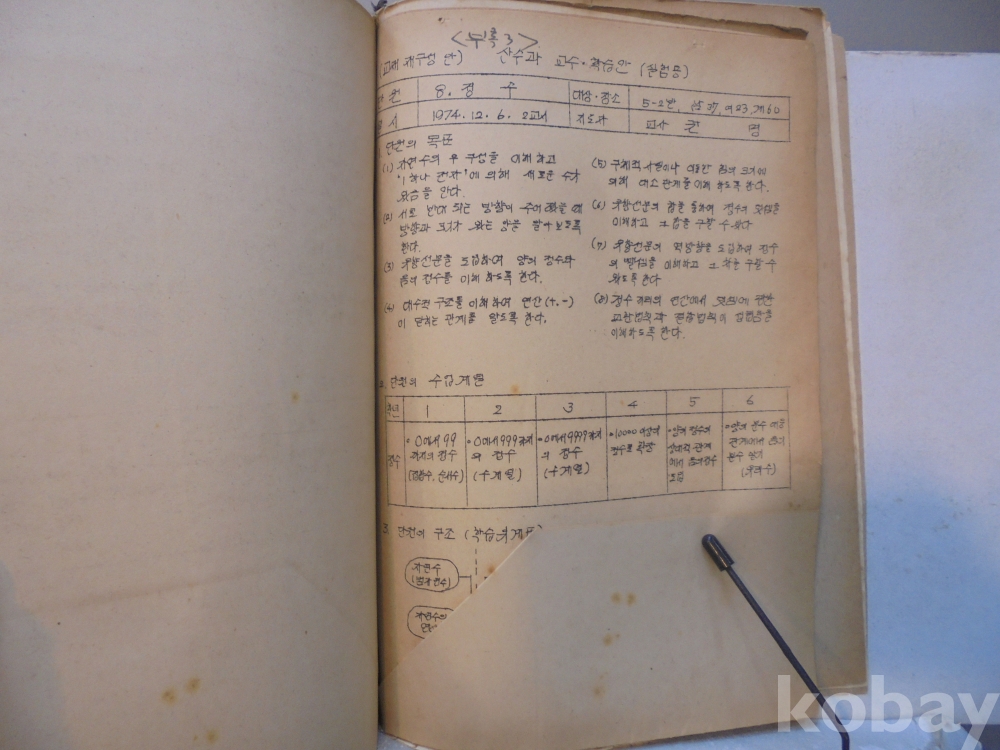 <부록 3>
(교재 재구성 안) 산수과 교수·학습안 (실험용)
단원 8. 정 수 대상·장소 5-2반, 남37, 여23, 계60
일시 1974. 12. 6. 2교시 지도자 교사
1. 단원의 목표
(1) 자연수의 구성을 이해하고
'1 하나 큰자'에 의해 새로운 수가
있음을 안다.
(2) 서로 반대 되는 방향이 주어졌을 때
방향과 크기가 있는 양을 알아보도록
한다.
(3) 유향선분을 도입하여 양의 정수와
음의 정수를 이해 하도록 한다.
(4) 대수적 구조를 이해하여 연산(+,-)
이 닫히는 관계를 알도록 한다.
(5) 구체적 사물이나 점의 크기에
의해 대소 관계를 이해 하도록 한다.
(6) 유향선분의 합을 통하여 정수의 덧셈을
이해하고 그 합을 구할 수 있다
(7) 유향선분의 역방향을 도입하여 정수
의 뺄셈을 이해하고 그 차를 구할 수
있도록 한다
(8) 정수 의 연산에서 덧셈에 관한
교환법칙과 결합법칙이 성립함을
이해하도록 한다.
2. 단원의 수업계열
학년 1 2 3 4 5 6
정수
◦0에서 99
까지의 정수
(집합수, 순서수)
◦0에서 999까지
의 정수
(수계열)
◦0에서 9999까지
의 정수
(수계열)
◦10000 이상의
정수로 확장
◦양의 정수의
관계
에서 음의정수
도입
◦양의 분수
관계에서 음의
분수 알기
(유리수)
3. 단원의 구조 (학습위계도)
자연수
(범자연수)
자연수의
kobay